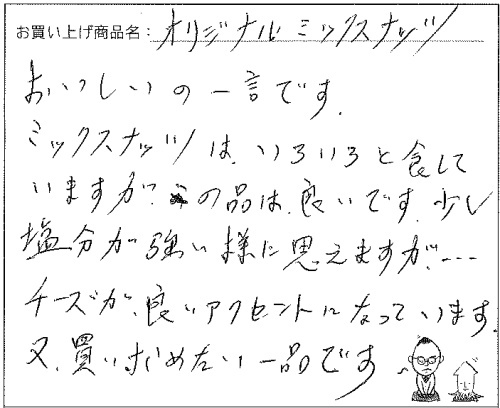 お買い上げ商品名：オリジナルミックスナッツ
おいしいの一言です.
ミックスナッツは、いろいろと食して
いますが、この品は、良いです.少し
塩分が強い様に思えますが、---
チーズが、良いアクセントになっています.
又、買い求めたい一品です